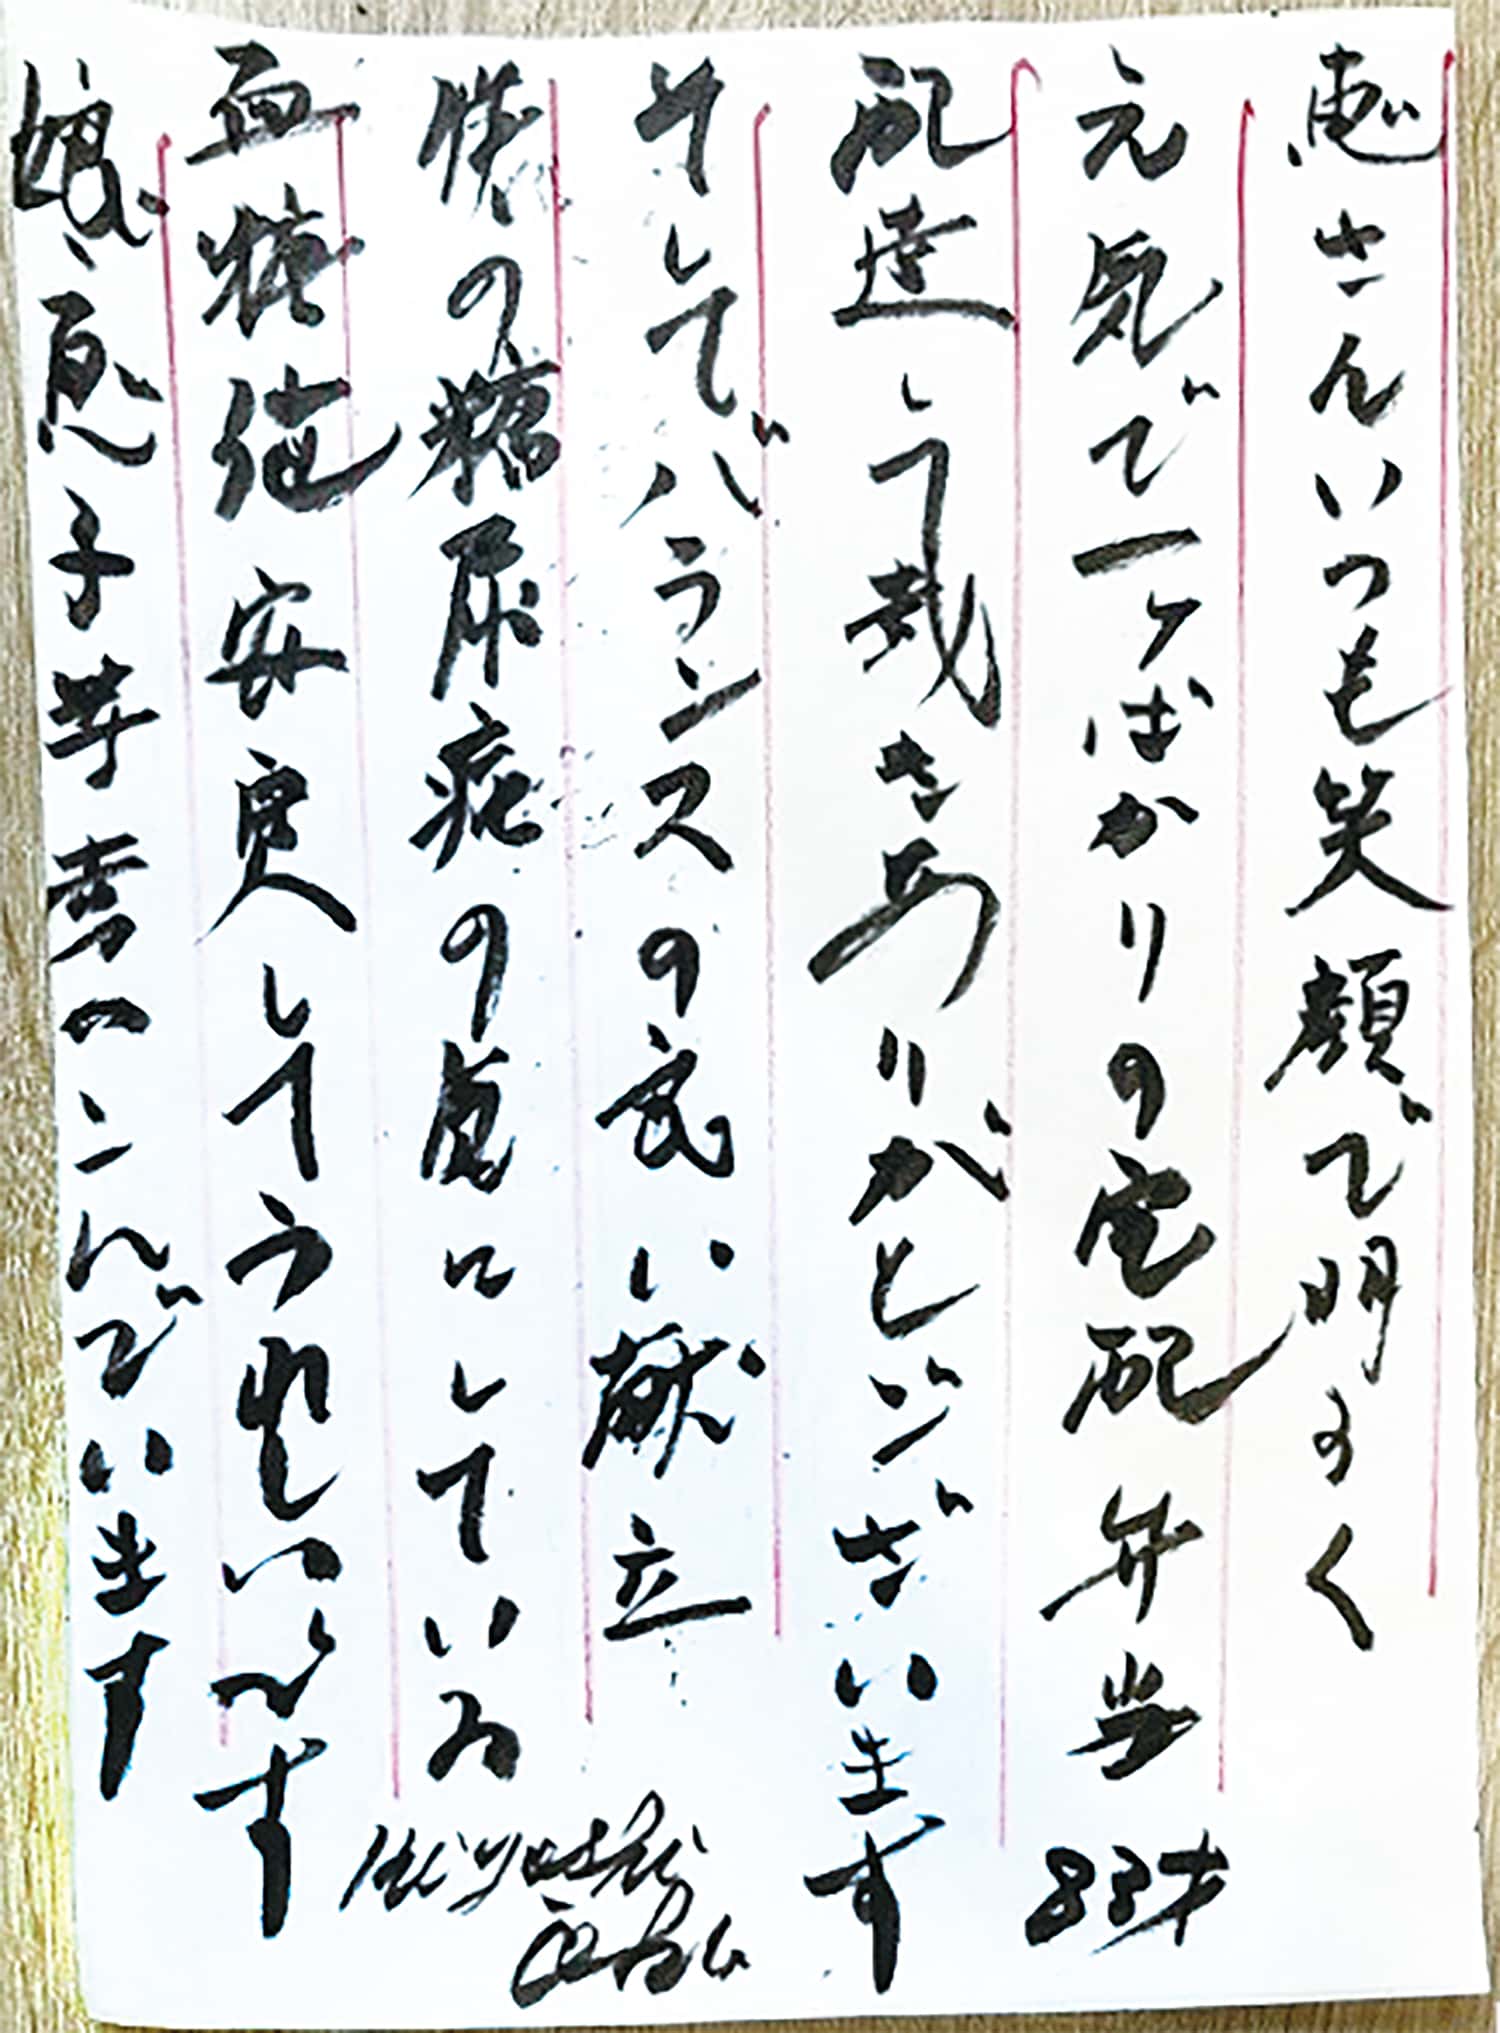 恵さんいつも笑顔で明るく
元気で一ケばかりの宅配弁当
配達して戴きありがとうございます
そしてバランスの良い献立
僕の糖尿病の為にしている
血糖値安定してうれしいです
娘、恵子等喜こんでいます
83才